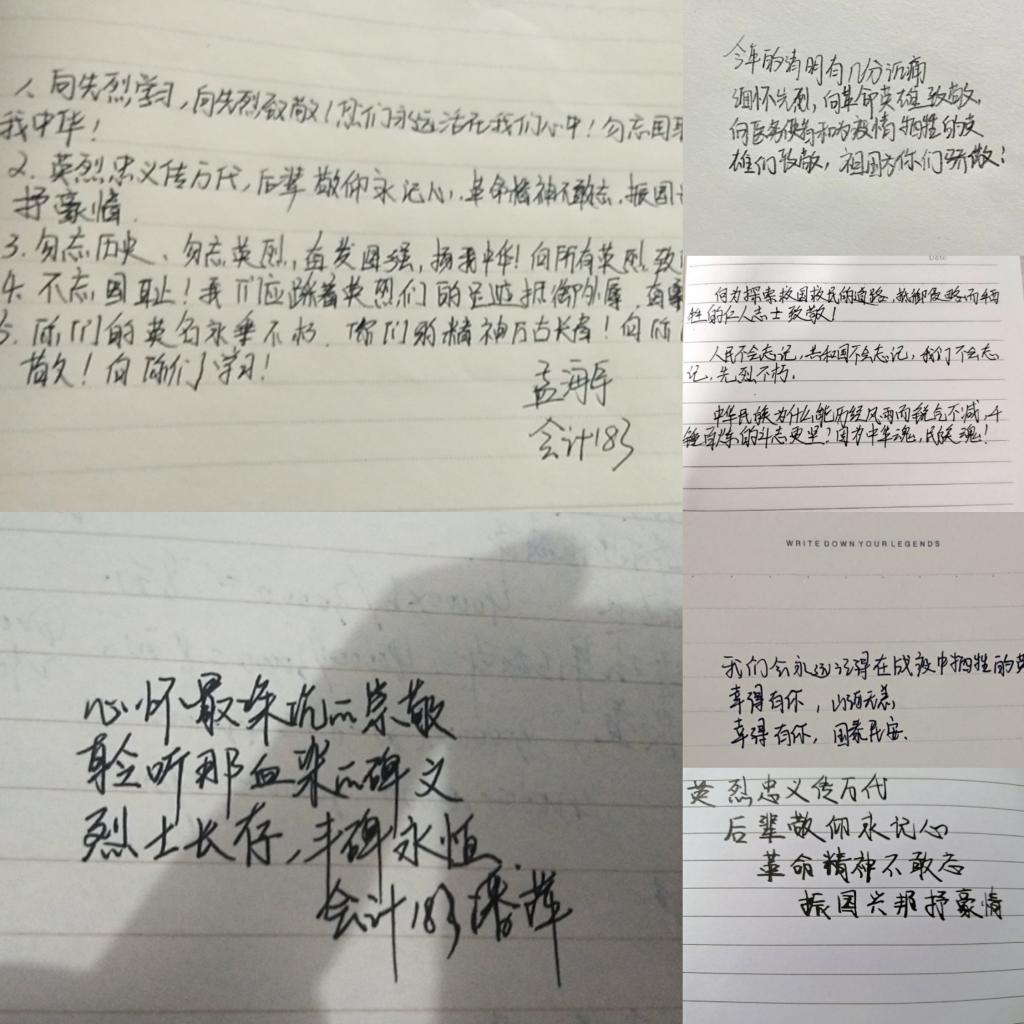 1、向先烈学习，向先烈致敬！您们永远活在我们心中！勿忘国耻
我中华！
2. 英烈忠义传万代，后辈敬仰永记心，革命精神不敢忘，振国
抒豪情.
3. 勿忘历史、勿忘英烈，奋发图强，扬我中华！向所有英烈致
4. 不忘国耻！我们应踏着英烈们的足迹抵御外辱，奋
5. 你们的英名永垂不朽，你们的精神万古长青！向你
敬！向你们学习！
孟海军
会计183
今年的清明有几分沉痛
缅怀先烈，向革命英雄致敬，
向医务使者和为疫情牺牲的英
雄们致敬，祖国为你们骄傲！
Date
向为探索救国救民的道路，抵御侵略而牺
牲的仁人志士致敬！
人民不会忘记，共和国不会忘记，我们不会忘
记，先烈不朽.
中华民族为什么能历经风雨而锐气不减，千
锤百炼的斗志更坚？因为中华魂，民族魂！
WRITE DOWN YOUR LEGENDS
我们会永远记得在战疫中牺牲的英
幸得有你，山河无恙，
幸得有你，国泰民安.
心怀最深沉的崇敬
聆听那血染的碑文
烈士长存，丰碑永恒.
会计183 潘辉
英烈忠义传万代
后辈敬仰永记心
革命精神不敢忘
振国兴邦抒豪情